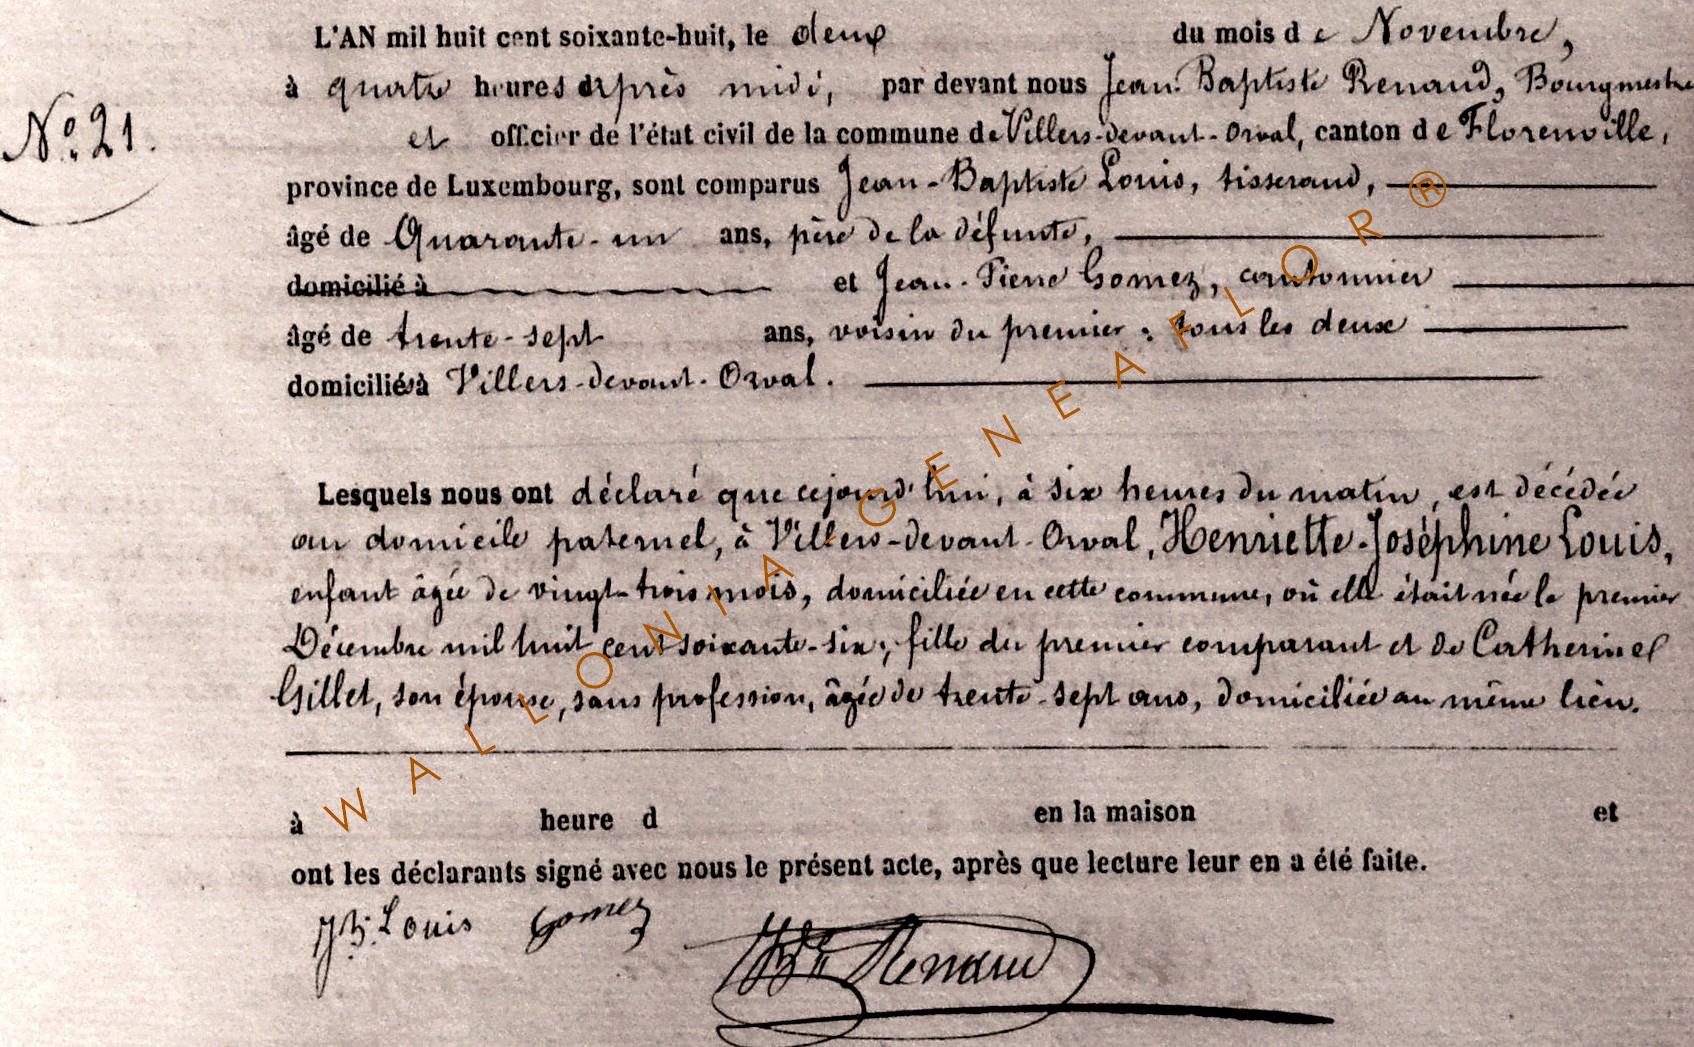 L'AN mil huit cent soixante-huit, le deux du mois de Novembre,
à quatre heures après midi, par devant nous Jean Baptiste Renaud, Bourgmestre
N° 21.
et officier de l'état civil de la commune de Villers-devant-Orval, canton de Florenville,
province de Luxembourg, sont comparus Jean-Baptiste Louis, tisserand,
âgé de Quarante-un ans, père de la défunte,
domicilié à et Jean-Pierre Gomez, cantonnier
âgé de trente-sept ans, voisin du premier ; tous les deux
domiciliés à Villers-devant-Orval.
Lesquels nous ont déclaré que cejourd'hui, à six heures du matin, est décédée
au domicile paternel, à Villers-devant-Orval, Henriette-Joséphine Louis,
enfant âgée de vingt-trois mois, domiciliée en cette commune, où elle était née le premier
Décembre mil huit cent soixante-six ; fille du premier comparant et de Catherine
Gillet, son épouse, sans profession, âgée de trente-sept ans, domiciliée au même lieu.
à heure d en la maison et
ont les déclarants signé avec nous le présent acte, après que lecture leur en a été faite.
JB. Louis Gomez
JBte Renaud
WALLONIA-GENEAFLOR®